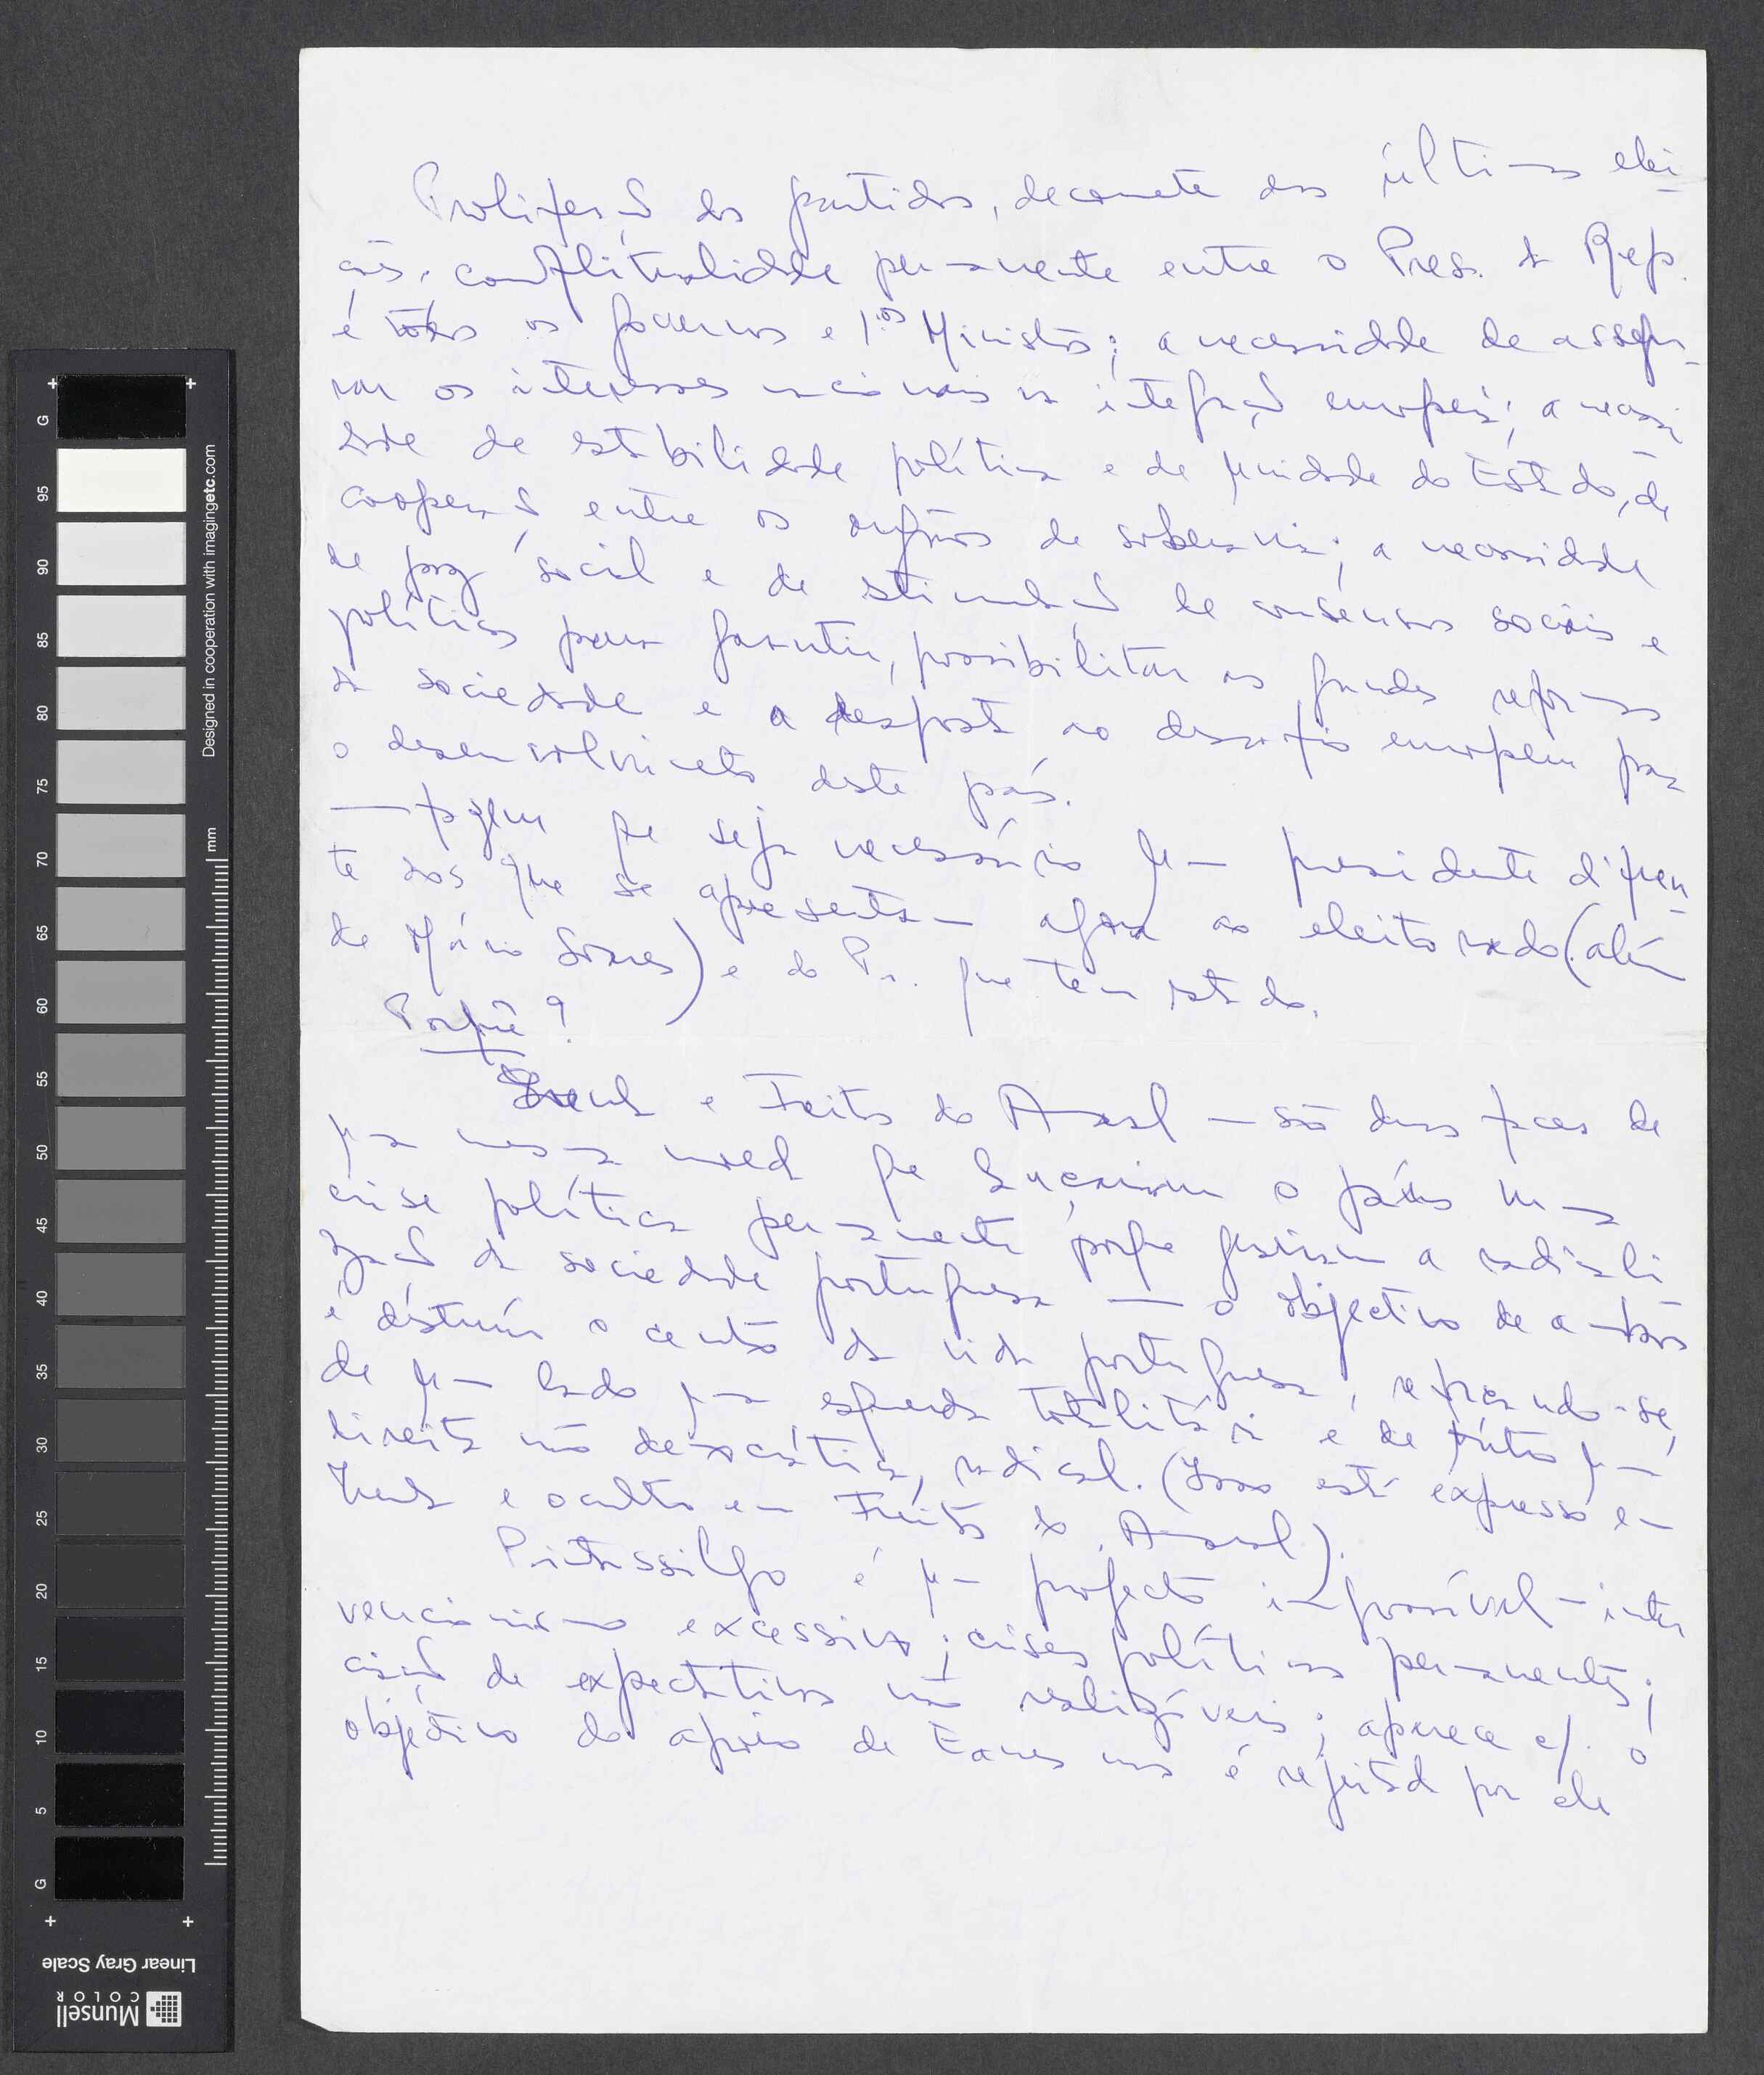 Proliferação dos partidos, decorrente das últimas elei-
ções; conflitualidade permanente entre o Pres. da Rep.
e todos os governos e 1ºs Ministros; a necessidade de assegu-
rar os interesses nacionais na integração europeia; a necessi-
dade de estabilidade política e de unidade do Estado, de
cooperação entre os orgãos de soberania; a necessidade
de paz social e de estimulação de consensos sociais e
políticos para garantir, possibilitar as grandes reformas
da sociedade e a resposta ao desafio europeu para
o desenvolvimento deste país.
— fazem que seja necessário um presidente diferen-
te dos que se apresentam agora ao eleitorado (além
de Mário Soares) e do Pr. que tem estado.
Porquê?
Zenha e Freitas do Amaral — são duas faces de
uma mesma moeda que lançariam o país numa
crise política permanente porque gerariam a radicali
zação da sociedade portuguesa — o objectivo de ambos
é destruir o centro da vida portuguesa, reforçando-se,
de um lado uma esquerda totalitária e de outro uma
direita não democrática, radical. (Isso está expresso em
Zenha e oculto em Freitas do Amaral).
Pintassilgo é um projecto impossível — inter
vencionismo excessivo; crises políticas permanentes;
criação de expectativas não realizáveis; aparece c/ o
objectivo do apoio de Eanes mas é rejeitada por ele
G
95
90
85
80
75
70
65
60
55
50
45
40
35
30
25
20
15
10
5
G
mm
Designed in cooperation with imagingetc.com
Linear Gray Scale
Munsell
COLOR